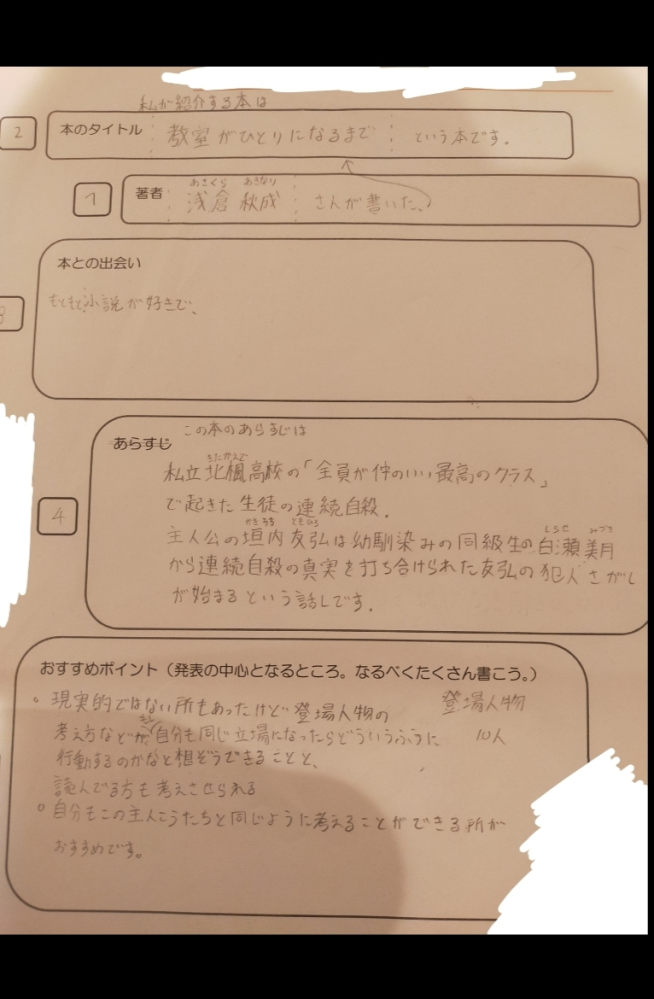 私が紹介する本は
2
本のタイトル 教室がひとりになるまで という本です。
1
あさくら あきなり
著者 浅倉 秋成 さんが書いた、
本との出会い
3
もともと小説が好きで、
この本のあらすじは
あらすじ
きたかえで
私立北楓高校の「全員が仲のいい最高のクラス」
4
で起きた生徒の連続自殺。
かきうち ともひろ しらせ みづき
主人公の垣内友弘は幼馴染みの同級生の白瀬美月
から連続自殺の真実を打ち合けられた友弘の犯人さがし
が始まるという話しです。
おすすめポイント（発表の中心となるところ。なるべくたくさん書こう。）
。現実的ではない所もあったけど登場人物の 登場人物
考え方などが、もし自分も同じ立場になったらどういうふうに 10人
行動するのかなと想ぞうできることと、
読んでる方も考えさせられる
。自分もこの主人こうたちと同じように考えることができる所が
おすすめです。